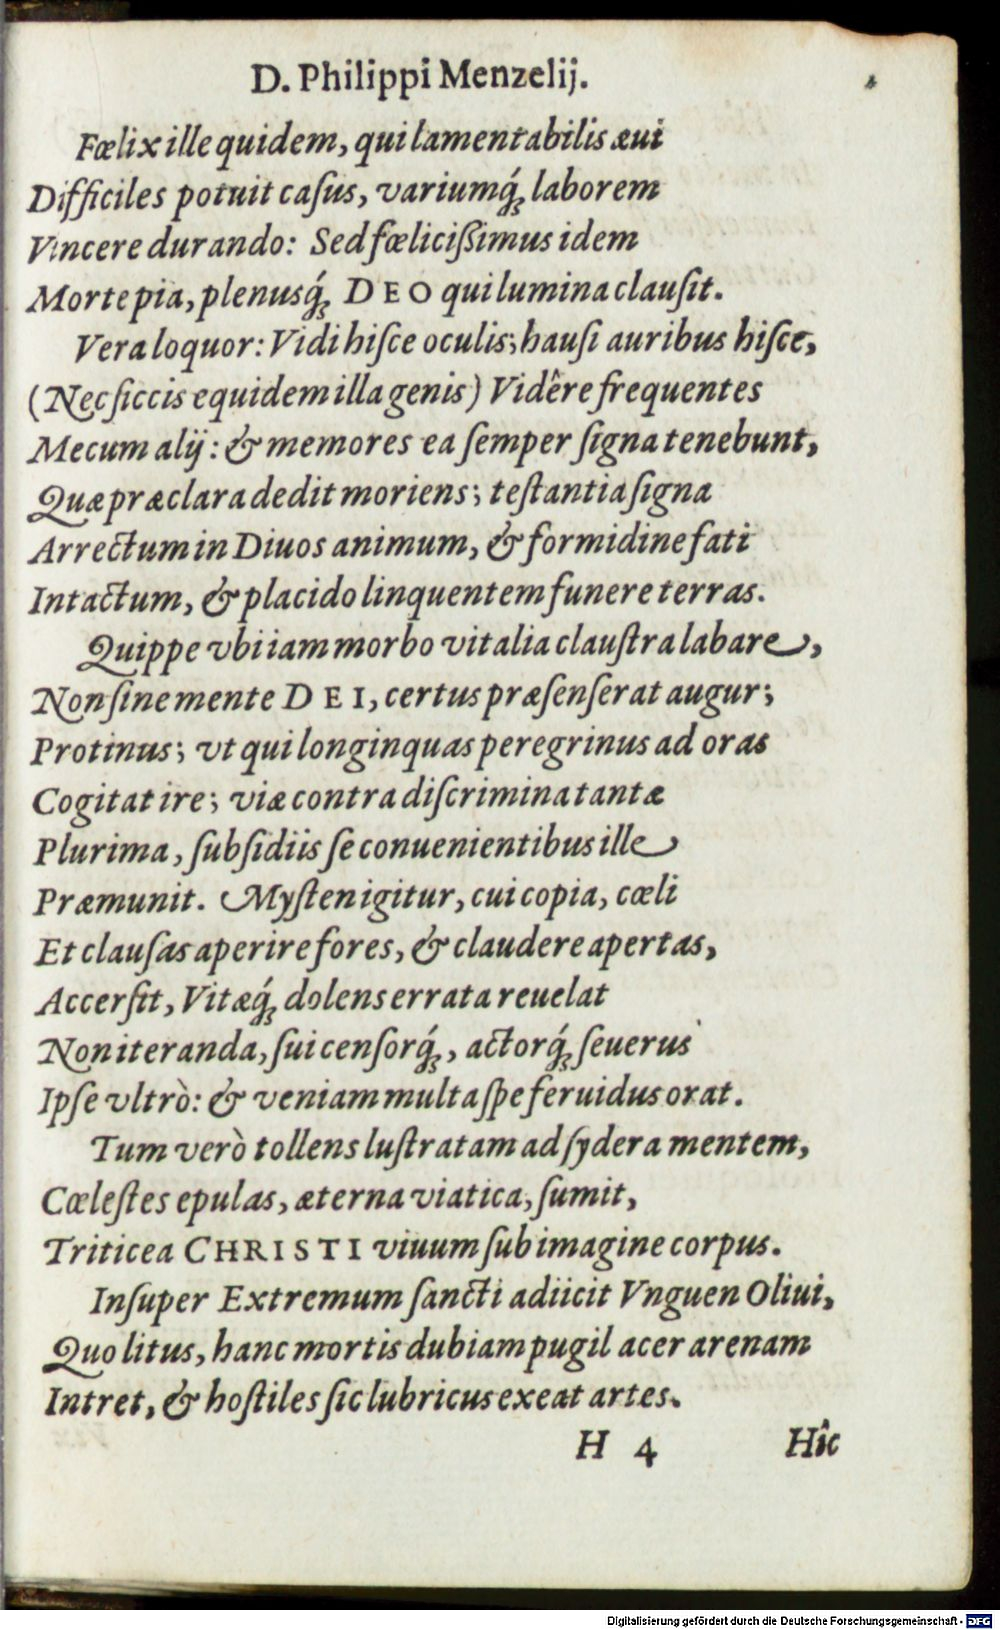 D. Philippi Menzelij.
Fœlix ille quidem, qui lamentabilis æui
Difficiles potuit caſus, variumq́ꝫ laborem
Vincere durando: Sed fœliciſſimus idem
Morte pia, plenusq́ꝫ DEO qui lumina clauſit.
Vera loquor: Vidi hiſce oculis; hauſi auribus hiſce,
(Nec ſiccis equidem illa genis) Vidêre frequentes
Mecum alij: & memores ea ſemper ſigna tenebunt,
Quæ præclara dedit moriens; teſtantia ſigna
Arrectum in Diuos animum, & formidine fati
Intactum, & placido linquentem funere terras.
Quippe vbi iam morbo vitalia clauſtra labare,
Non ſine mente DEI, certus præſenſerat augur;
Protinus; vt qui longinquas peregrinus ad oras
Cogitat ire; viæ contra diſcrimina tantæ
Plurima, ſubſidiis ſe conuenientibus ille
Præmunit. Myſten igitur, cui copia, cœli
Et clauſas aperire fores, & claudere apertas,
Accerſit, Vitæq́ꝫ dolens errata reuelat
Non iteranda, ſui cenſorq́ꝫ, actorq́ꝫ ſeuerus
Ipſe vltrò: & veniam multa ſpe feruidus orat.
Tum verò tollens luſtratam ad ſydera mentem,
Cœleſtes epulas, æterna viatica, ſumit,
Triticea CHRISTI viuum ſub imagine corpus.
Inſuper Extremum ſancti adiicit Vnguen Oliui,
Quo litus, hanc mortis dubiam pugil acer arenam
Intret, & hoſtiles ſic lubricus exeat artes.
H 4 Hîc
Digitalisierung gefördert durch die Deutsche Forschungsgemeinschaft - DFG